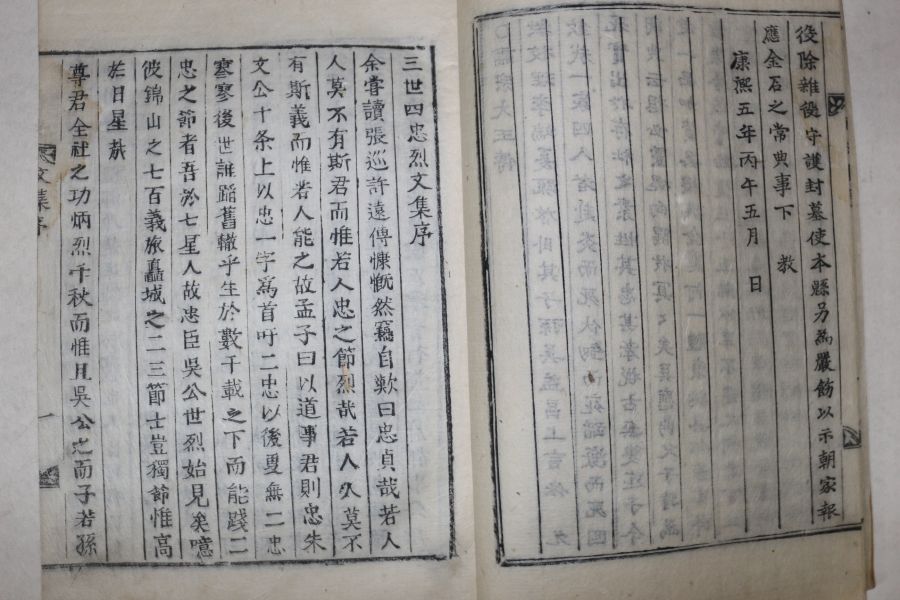 後除雜役守護封墓使本縣另爲嚴飭以示朝家報
應金石之常典事下 敎
康熙五年丙午五月 日
三世四忠烈文集序
余嘗讀張巡許遠傳慷慨然竊自歎曰忠貞哉若人
人莫不有斯君而惟若人忠之節烈哉若人久莫不
有斯義而惟若人能之故孟子曰以道事君則忠朱
文公十条上以忠一字爲首吁二忠以後更無二忠
寥寥後世誰踏舊轍乎生於數千載之下而能踐二
忠之節者吾於七星人故忠臣吳公世烈始見矣噫
彼錦山之七百義旅矗城之二三節士豈獨節惟高
於日星哉
尊君全社之功炳烈千秋而惟且吳公之而子若孫
文集序
一